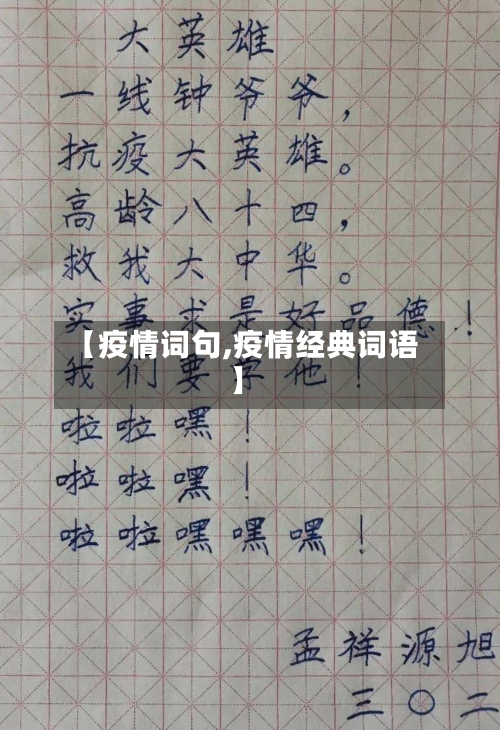 大英雄
一线钟爷爷，
抗疫大英雄。
高龄八十四，
救我大中华。
实事求是好品德！
【疫情词句,疫情经典词语
】
我们要学他！
啦啦嘿！
啦啦嘿！
啦啦嘿嘿嘿！
孟祥源旭
三〇二